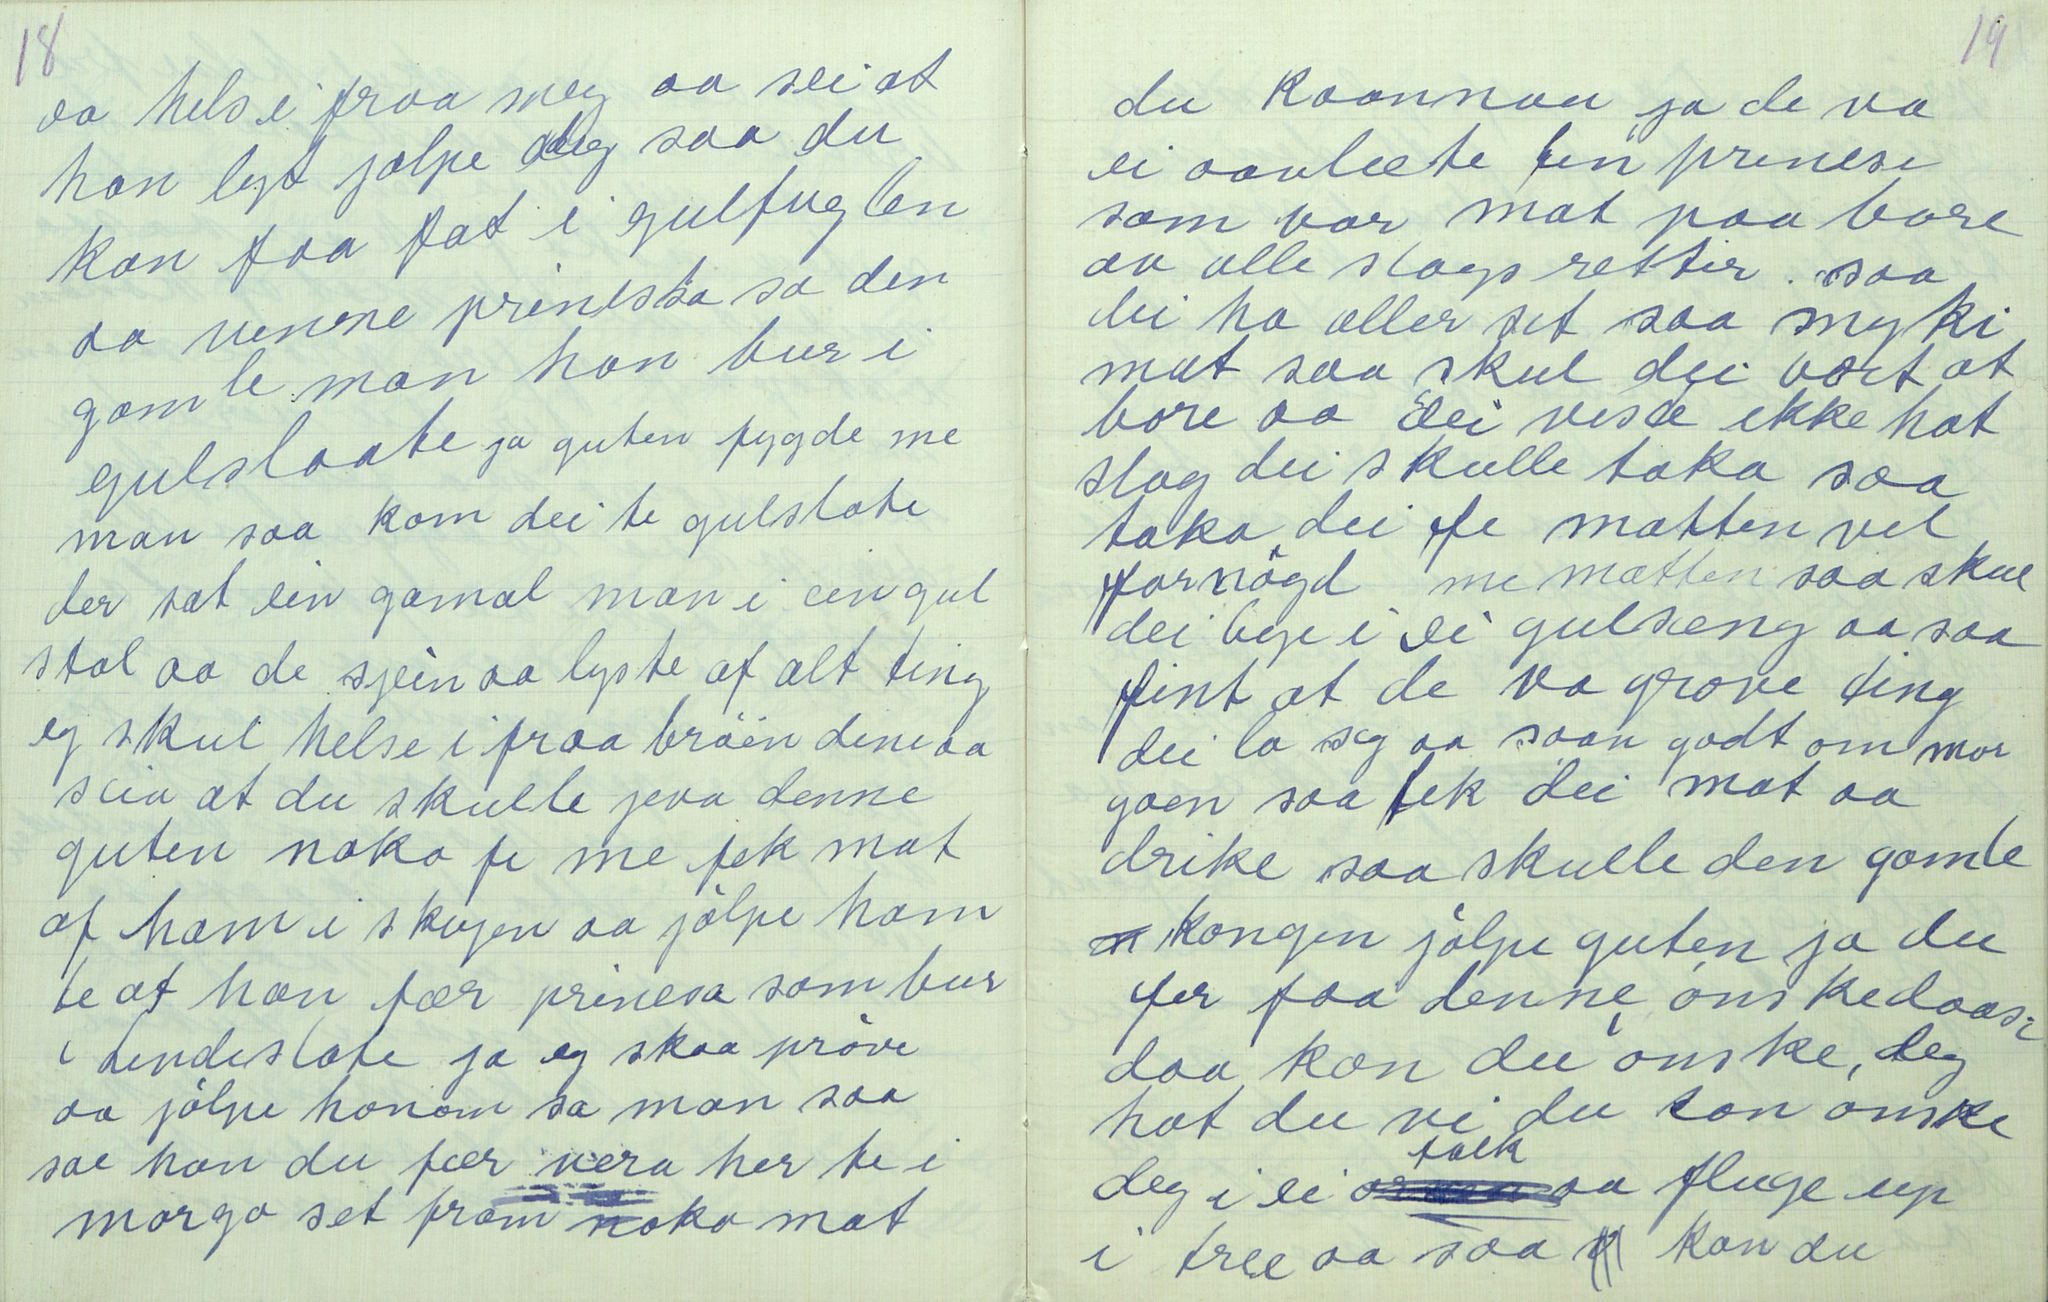 18
aa helse i fraa meg aa sei at
han lyt jølpe deg saa du
kan faa fat i gulfuglen
aa venne prinessa sa den
gamle man han bur i
gulslaate ja guten fygde me
man saa kom dei te gulslate
der sat ein gamal man i ein gul
stol aa de sjein aa lyste af alt ting
eg skul helse i fraa bröen dene aa
seia at du skulle jeva denne
guten noko fe me fek mat
af ham i skogen aa jölpe ham
te at han fær prinesa som bur
i lendeslate ja eg skaa pröve
aa jölpe honom sa man saa
sae han du fær vera her te i
morgo set fram noko mat
19
du kaannau ja de va
ei aavlæte fin prinese
som bar mat paa bore
aa alle slags rettir. saa
dei ha aller set saa myki
mat saa skul dei vært at
bore aa dei viste ikke hat
slag dei skulle taka saa
taka dei fe matten vel
fornögd me matten saa skul
dei lige i ei gulseng aa saa
fint at de va grove ting
dei la seg aa saav godt om mor
goen saa fek dei mat aa
drike saa skulle den gamle
kongen jölpe guten ja du
fer faa denne önskedaase
daa kan du önske, deg
hat du vi du kan önske
deg i ei falk aa fluge up
i tree aa saa kan du